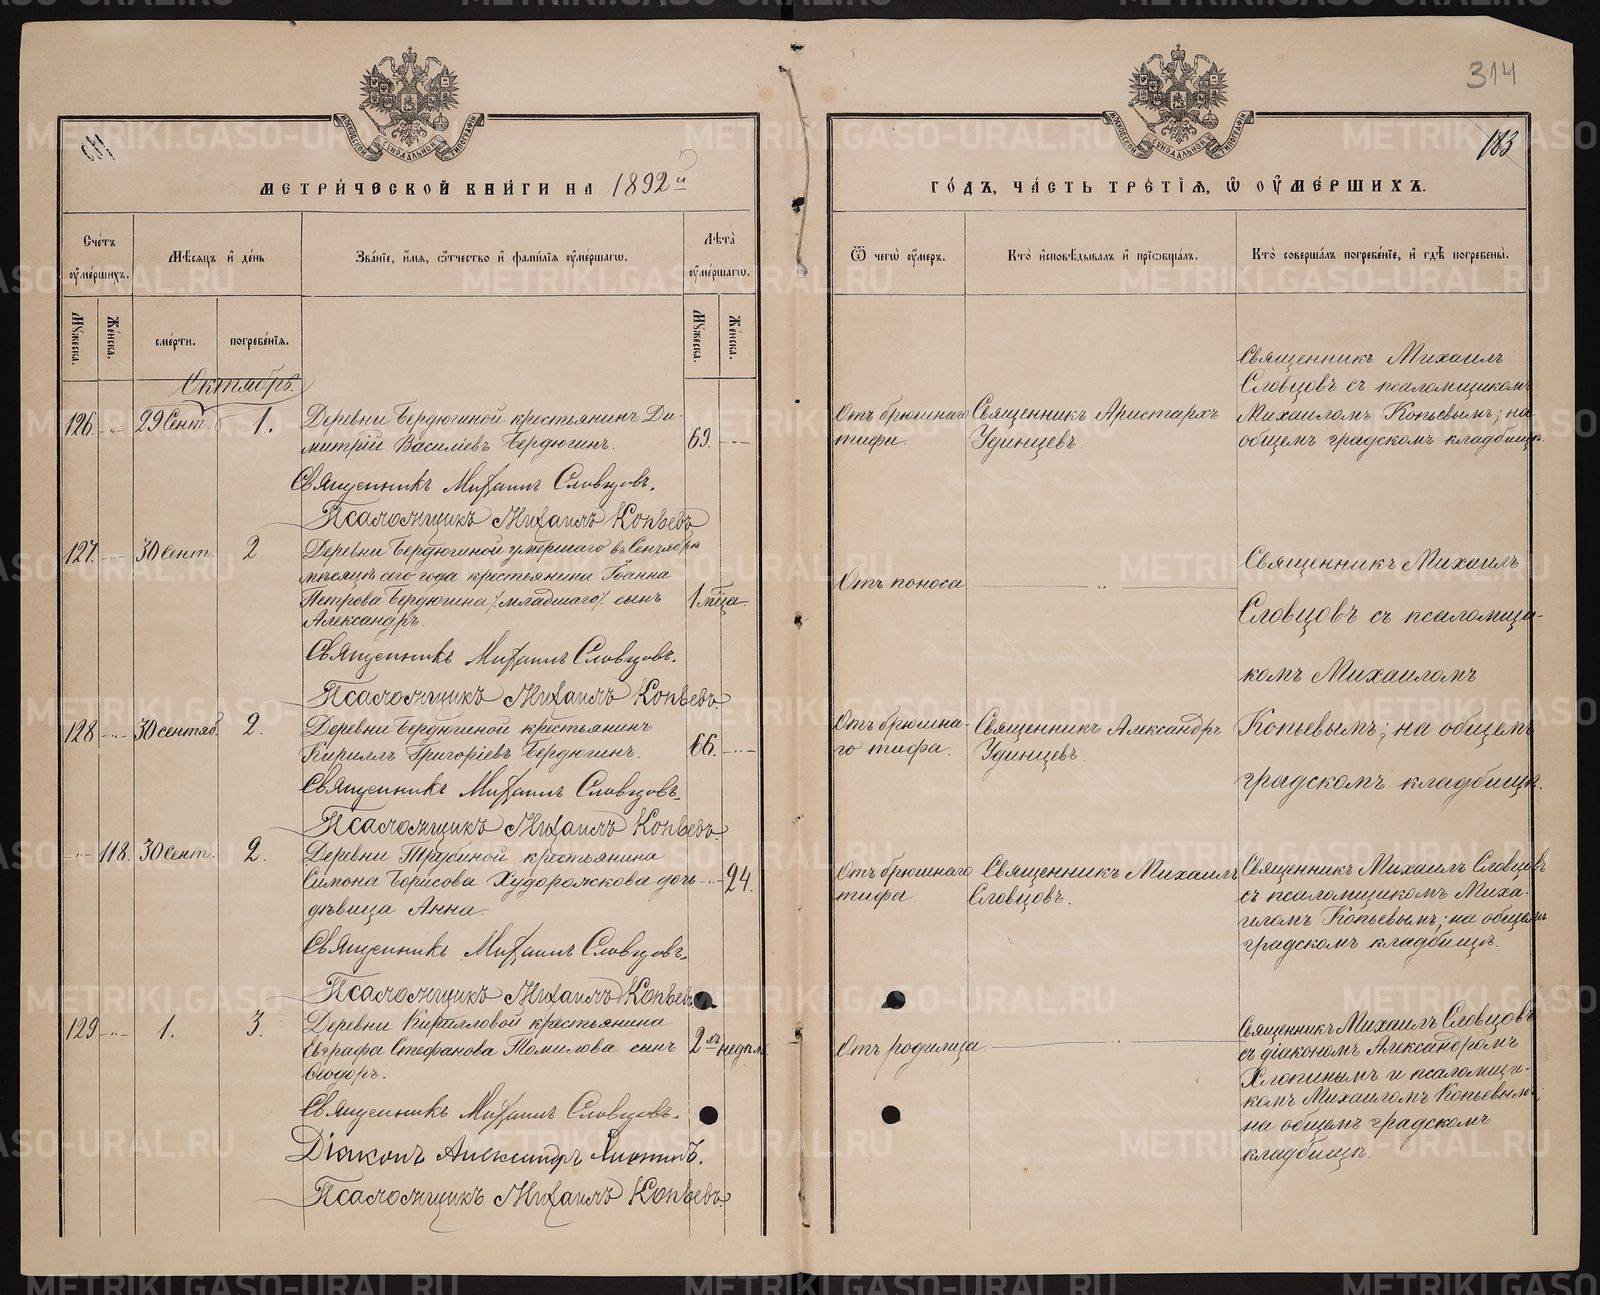 314
183
МЕТРИЧЕСКОЙ КНИГИ НА 1892й
ГОДЪ, ЧАСТЬ ТРЕТІЯ, Ѿ ОУМЕРШИХЪ.
Счетъ оумершихъ.
Мѣсяцъ и день
Званіе, имя, ѿтчество и фамилія оумершагѡ.
Лѣта оумершагѡ.
Мужеска.
Женска.
смерти.
погребенія.
Мужеска.
Женска.
Ѿ чегѡ оумеръ.
Кто исповѣдывалъ и пріѡбщалъ.
Кто совершалъ погребеніе, и гдѣ погребены.
Октябрь.
126. -"- 29 Сент. 1.
Деревни Бердюгиной крестьянинъ Ди-
митрій Василіевъ Бердюгинъ.
69. -"-
Отъ брюшнаго
тифа.
Священникъ Аристархъ
Удинцевъ.
Священникъ Михаилъ
Словцовъ съ псаломщикомъ
Михаиломъ Копьевымъ; на
общемъ градскомъ кладбищѣ.
Священникъ Михаилъ Словцовъ.
Псаломщикъ Михаилъ Копьевъ
127. -"- 30 Сент. 2.
Деревни Бердюгиной умершаго въ Сентябрѣ
мѣсяцѣ сего года крестьянина Іоанна
Петрова Бердюгина /младшаго/ сынъ
Александръ.
1 м͠ца.
Отъ поноса
-"-
Священникъ Михаилъ
Словцовъ съ псаломщи-
комъ Михаиломъ
Копьевымъ; на общемъ
градскомъ кладбищѣ.
Священникъ Михаилъ Словцовъ.
Псаломщикъ Михаилъ Копьевъ.
128 -"- 30 сентяб. 2.
Деревни Бердюгиной крестьянинъ
Кириллъ Григоріевъ Бердюгинъ.
66. -"-
Отъ брюшна-
го тифа.
Священникъ Александръ
Удинцевъ.
Священникъ Михаилъ Словцовъ.
Псаломщикъ Михаилъ Копьевъ.
-"- 118. 30 Сент. 2.
Деревни Трубиной крестьянина
Симона Борисова Худорожкова дочь
дѣвица Анна.
-"- 24.
Отъ брюшнаго
тифа
Священникъ Михаилъ
Словцовъ.
Священникъ Михаилъ Словцовъ
съ псаломщикомъ Миха-
иломъ Копьевымъ; на общемъ
градскомъ кладбищѣ.
Священникъ Михаилъ Словцовъ.
Псаломщикъ Михаилъ Копьевъ
129 -"- 1. 3.
Деревни Кирилловой крестьянина
Евграфа Стефанова Томилова сынъ
Ѳеодоръ.
2хъ недѣль
Отъ родимца
Священникъ Михаилъ Словцовъ
съ діакономъ Александромъ
Хлопинымъ и псаломщи-
комъ Михаиломъ Копьевымъ;
на общемъ градскомъ
кладбищѣ.
Священникъ Михаилъ Словцовъ.
Діаконъ Александръ Хлопинъ.
Псаломщикъ Михаилъ Копьевъ.
METRIKI.GASO-URAL.RU